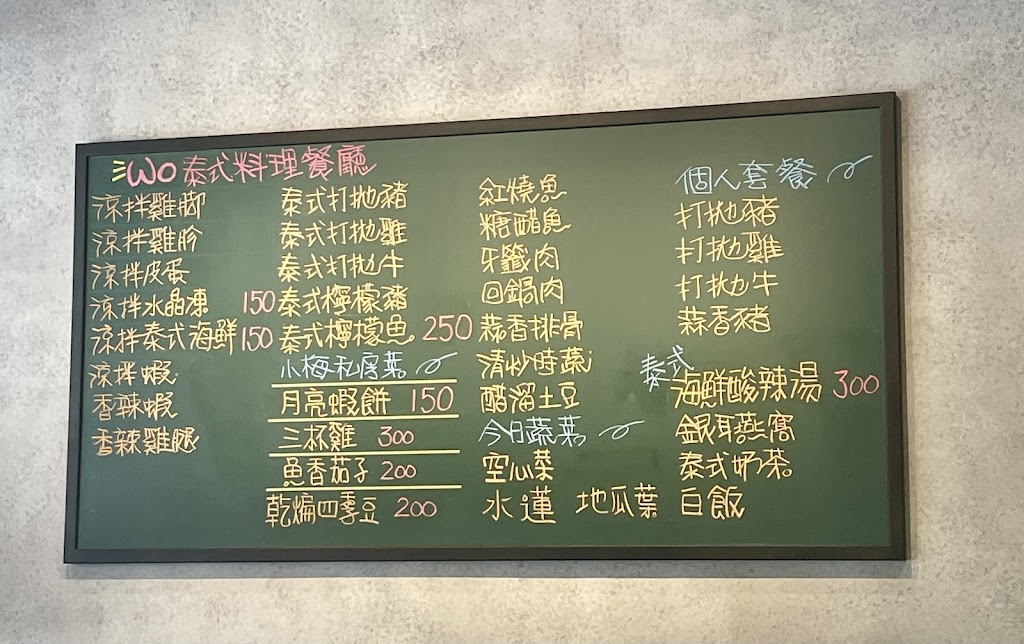 Wo 泰式料理餐廳
涼拌雞脚
涼拌雞胗
涼拌皮蛋
涼拌水晶凍 150
涼拌泰式海鮮 150
涼拌蝦
香辣蝦
香辣雞腿
泰式打拋豬
泰式打拋雞
泰式打拋牛
泰式檸檬豬
泰式檸檬魚 250
小梅私房菜
月亮蝦餅 150
三杯雞 300
魚香茄子 200
乾煸四季豆 200
紅燒魚
糖醋魚
牙籤肉
回鍋肉
蒜香排骨
清炒時蔬
醋溜土豆
今日蔬菜
空心菜
水蓮 地瓜葉 白飯
個人套餐
打拋豬
打拋雞
打拋牛
蒜香豬
泰式海鮮酸辣湯 300
銀耳燕窩
泰式奶茶